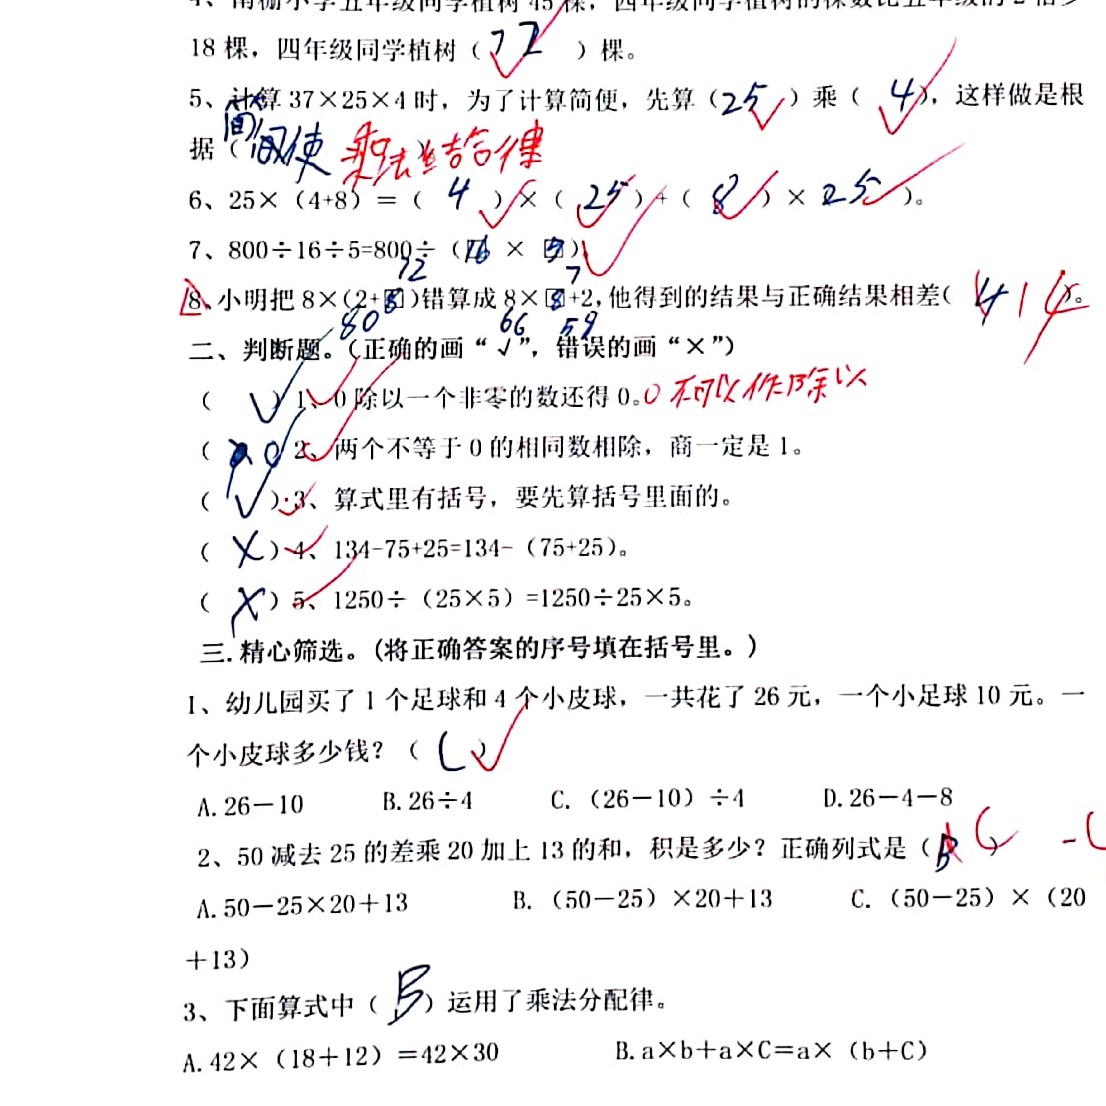 18 棵，四年级同学植树（ 72 ）棵。
5、计算 37×25×4 时，为了计算简便，先算（25）乘（ 4 ），这样做是根
据（简便 乘法结合律
6、25×（4+8）＝（ 4 ）×（ 25 ）+（ 8 ）× 25 ）。
7、800÷16÷5=800÷（16 × 5）
8、小明把 8×(2+□)错算成 8×□+2,他得到的结果与正确结果相差( 14 )。
二、判断题。（正确的画“√”，错误的画“×”）
（ √ ）1、0 除以一个非零的数还得 0。0 不可以作除以
（ ）2、两个不等于 0 的相同数相除，商一定是 1。
（ √ ）3、算式里有括号，要先算括号里面的。
（ × ）4、134-75+25=134-（75+25）。
（ × ）5、1250÷（25×5）=1250÷25×5。
三.精心筛选。(将正确答案的序号填在括号里。)
1、幼儿园买了 1 个足球和 4 个小皮球，一共花了 26 元，一个小足球 10 元。一
个小皮球多少钱？（ C ）
A.26－10 B.26÷4 C.（26－10）÷4 D.26－4－8
2、50 减去 25 的差乘 20 加上 13 的和，积是多少？正确列式是（ B C
A.50－25×20＋13 B.（50－25）×20＋13 C.（50－25）×（20
＋13）
3、下面算式中（ B ）运用了乘法分配律。
A.42×（18＋12）＝42×30 B.a×b＋a×C＝a×（b＋C）